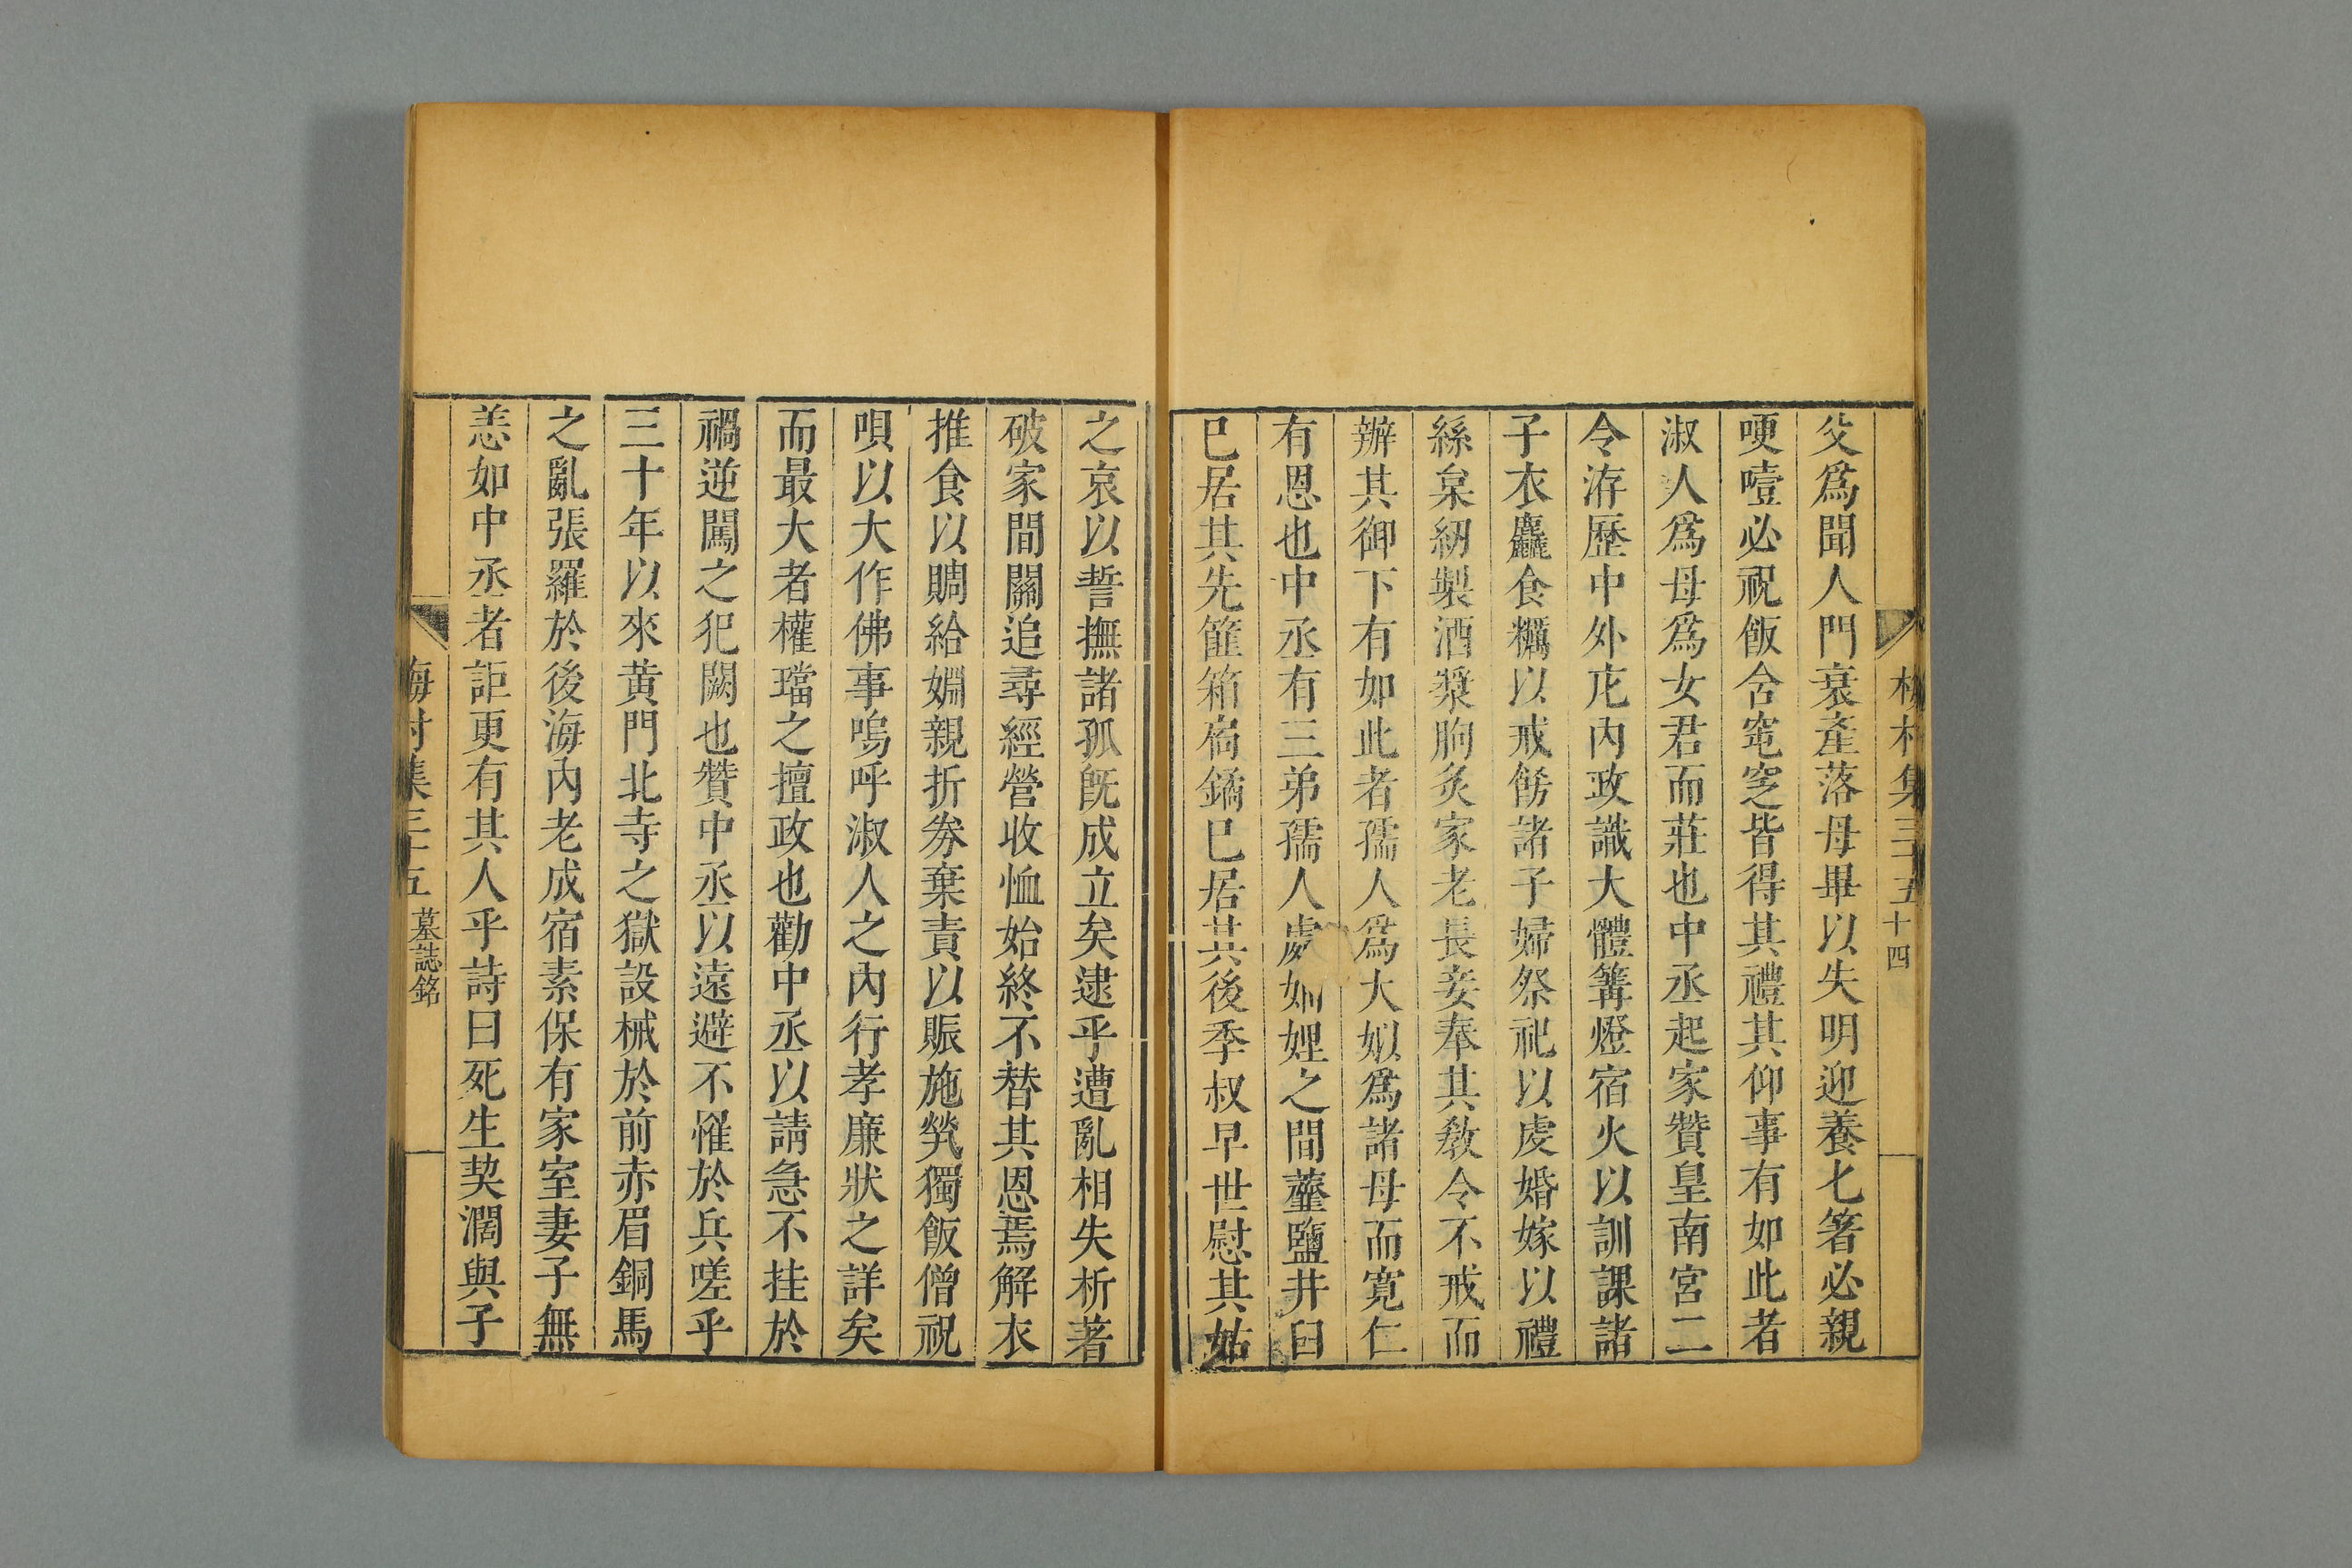 梅村集三五 十四
父爲聞人門衰產落母畢以失明迎養匕箸必親
哽噎必祝飯含窀穸皆得其禮其仰事有如此者
淑人爲母爲女君而莊也中丞起家贊皇南宮二
令洊歷中外庀內政識大體篝燈宿火以訓課諸
子衣麤食糲以戒飭諸子婦祭祀以虔婚嫁以禮
絲枲紉製酒漿朐炙家老長妾奉其敎令不戒而
辦其御下有如此者孺人爲大姒爲諸母而寬仁
有恩也中丞有三弟孺人處姒娌之間虀鹽井臼
已居其先簏箱扃鐍已居其後季叔早世慰其姑
之哀以誓撫諸孤旣成立矣逮乎遭亂相失析著
破家間關追尋經營收恤始終不替其恩焉解衣
推食以賙給婣親折劵棄責以賑施煢獨飯僧祝
唄以大作佛事嗚呼淑人之內行孝廉狀之詳矣
而最大者權璫之擅政也勸中丞以請急不挂於
禍逆闖之犯闕也贊中丞以遠避不罹於兵嗟乎
三十年以來黃門北寺之獄設械於前赤眉銅馬
之亂張羅於後海內老成宿素保有家室妻子無
恙如中丞者詎更有其人乎詩曰死生契濶與子
梅村集三五 墓誌銘